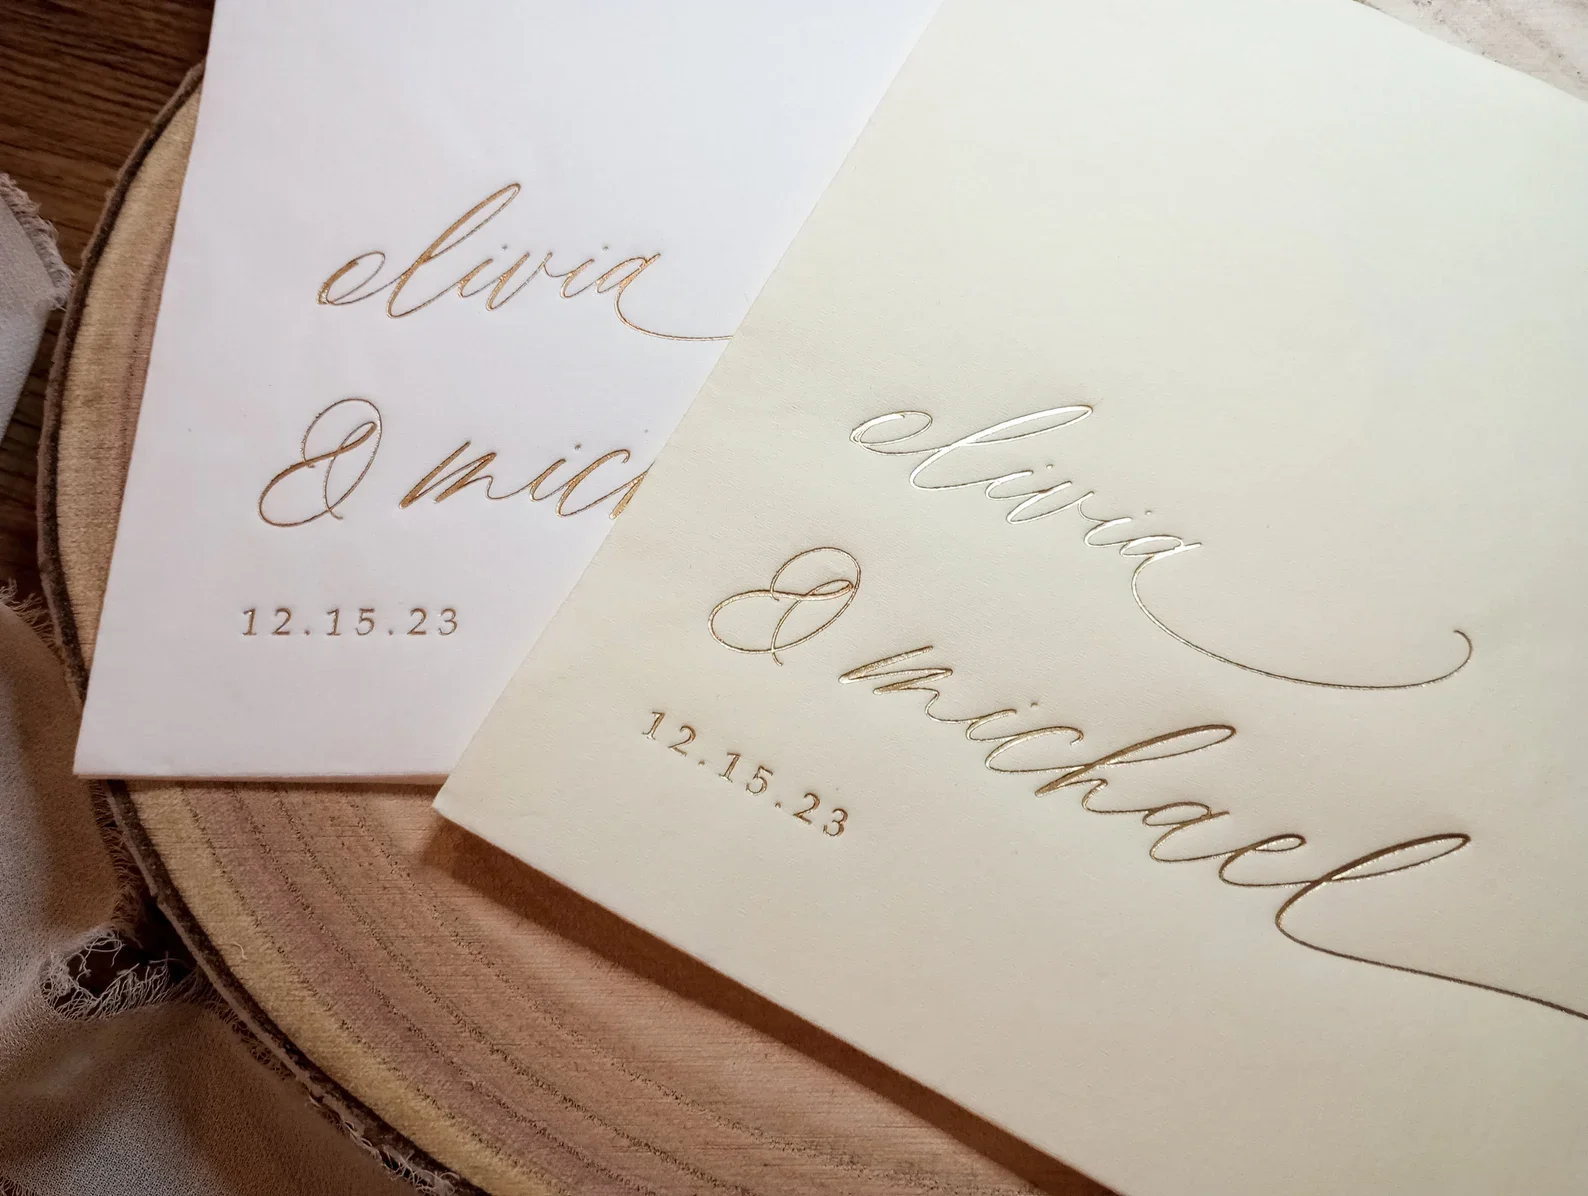 olivia
& mich
12.15.23
olivia
& michael
12.15.23